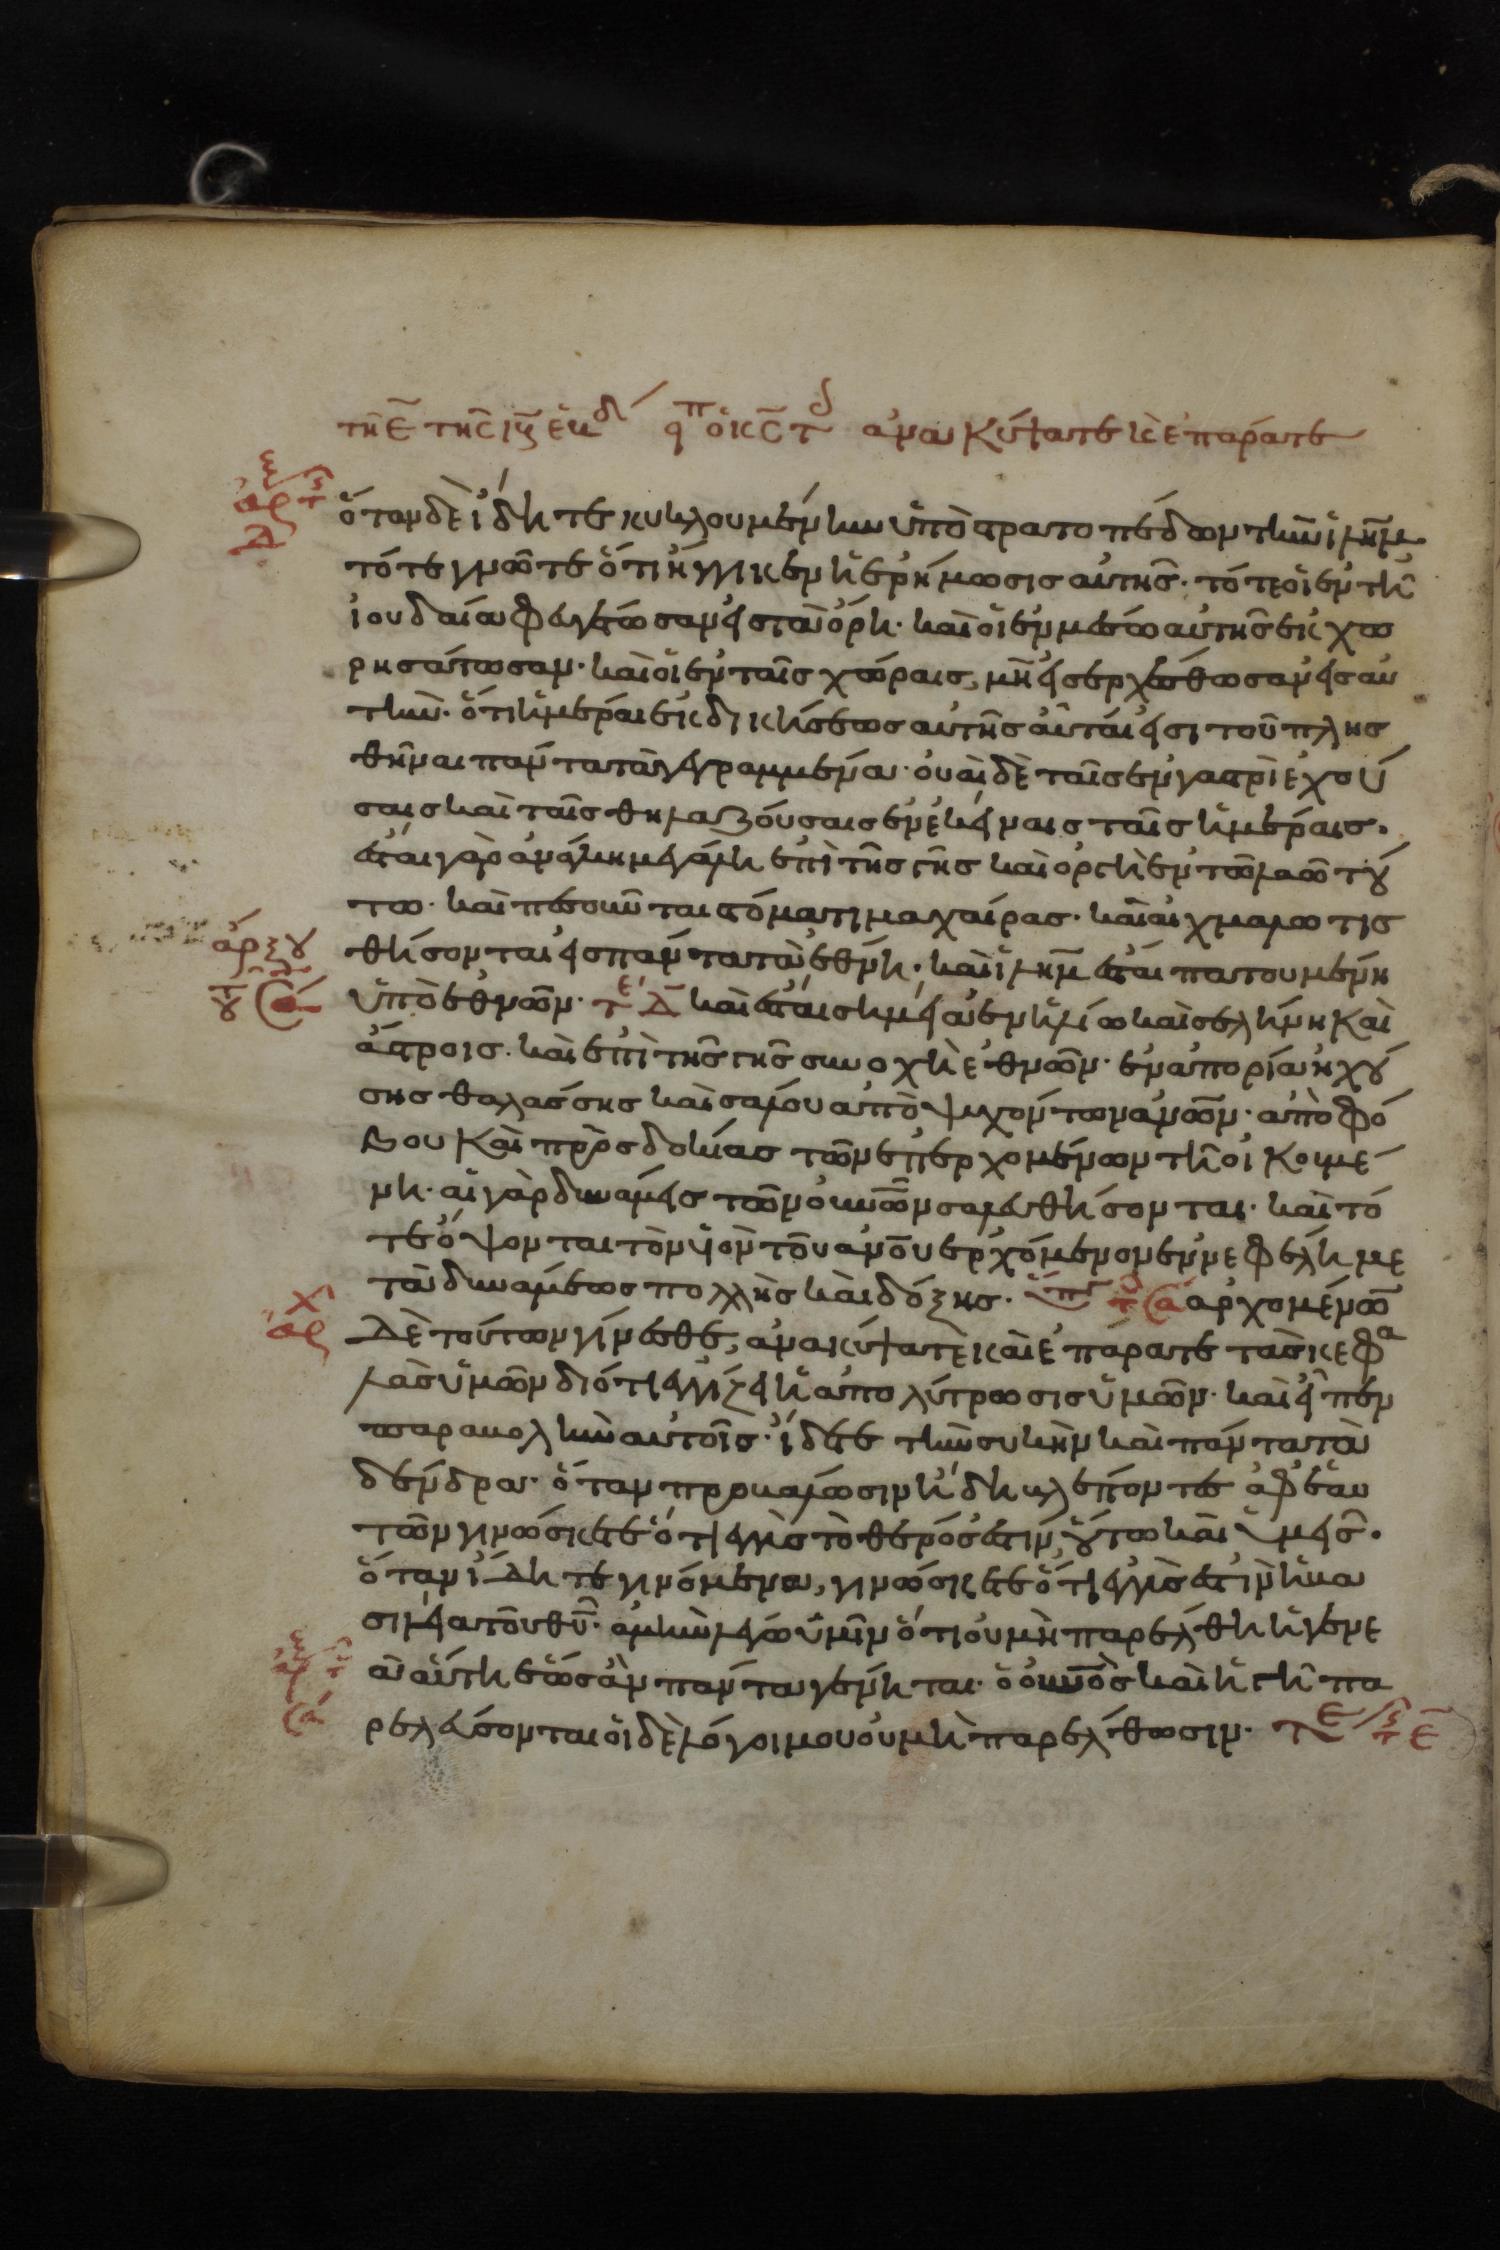 ὅταν δὲ ἴδητε κυκλουμένην ὑπὸ στρατοπέδων τὴν ἰλῆμ
τότε γνῶτε ὅτι ἤγγικεν ἡ ἐρήμωσις αὐτῆς· τότε οἱ ἐν τῆ
ἰουδαία φευγέτωσαν εἰς τὰ ὄρη· καὶ οἱ ἐν μέσω αὐτῆς ἐκχω
ρησάτωσαν· καὶ οἱ ἐν ταῖς χώραις, μὴ εἰσερχέσθωσαν εἰς αὐ
τὴν· ὅτι ἡμέραι ἐκδικήσεως αὐτῆς αὗταί εἰσι τοῦ πλησ
θῆναι πάντα τὰ γεγραμμένα· οὐαὶ δὲ ταῖς ἐν γαστρὶ ἐχού
σαις καὶ ταῖς θηλαζούσαις ἐν ἐκείναις ταῖς ἡμέραις·
ἔσται γὰρ ἀνάγκη μεγάλη ἐπὶ τῆς γῆς καὶ ὀργὴ ἐν τῶ λαῶ τού
τω· καὶ πεσοῦνται στόματι μαχαίρας· καὶ αἰχμαλωτισ
θήσονται εἰς πάντα τὰ ἔθνη· καὶ ἰλῆμ ἔσται πατουμένη
ὑπὸ ἐθνῶν· καὶ ἔσται σημεῖα ἐν ἡλίω καὶ σελήνη καὶ
ἄστροις· καὶ ἐπὶ τῆς γῆς συνοχὴ ἐθνῶν· ἐν ἀπορία ἠχού
σης θαλάσσης καὶ σάλου ἀποψυχόντων ἀνῶν· ἀπὸ φό
βου καὶ προσδοκίας τῶν ἐπερχομένων τῆ οἰκουμέ
νη· αἱ γὰρ δυνάμεις τῶν οὐνῶν σαλευθήσονται· καὶ τό
τε ὄψονται τὸν υἱὸν τοῦ ἀνου ἐρχόμενον ἐν νεφέλη με
τὰ δυνάμεως πολλῆς καὶ δόξης· ἀρχομένων
δὲ τούτων γίνεσθε, ἀνακύψατε καὶ ἐπάρατε τὰς κεφα
λὰς ὑμῶν διότι ἐγγίζει ἡ ἀπολύτρωσις ὑμῶν· καὶ εἶπεν
παραβολὴν αὐτοῖς· ἴδετε τὴν συκὴν καὶ πάντα τὰ
δένδρα· ὅταν προβάλωσιν ἤδη βλέποντες ἀφ' ἑαυ
τῶν γινώσκετε ὅτι ἐγγὺς τὸ θέρος ἐστιν, οὕτω καὶ ὑμεῖς·
ὅταν ἴδητε γινόμενα, γινώσκετε ὅτι ἐγγύς ἐστιν ἡ βα
σιλεία τοῦ θυ· ἀμὴν λέγω ὑμῖν ὅτι οὐ μὴ παρέλθη ἡ γενε
ὰ αὕτη ἕως ἂν πάντα γένηται· ὁ οὐνὸς καὶ ἡ γῆ πα
ρελεύσονται οἱ δὲ λόγοι μου οὐ μὴ παρέλθωσιν·